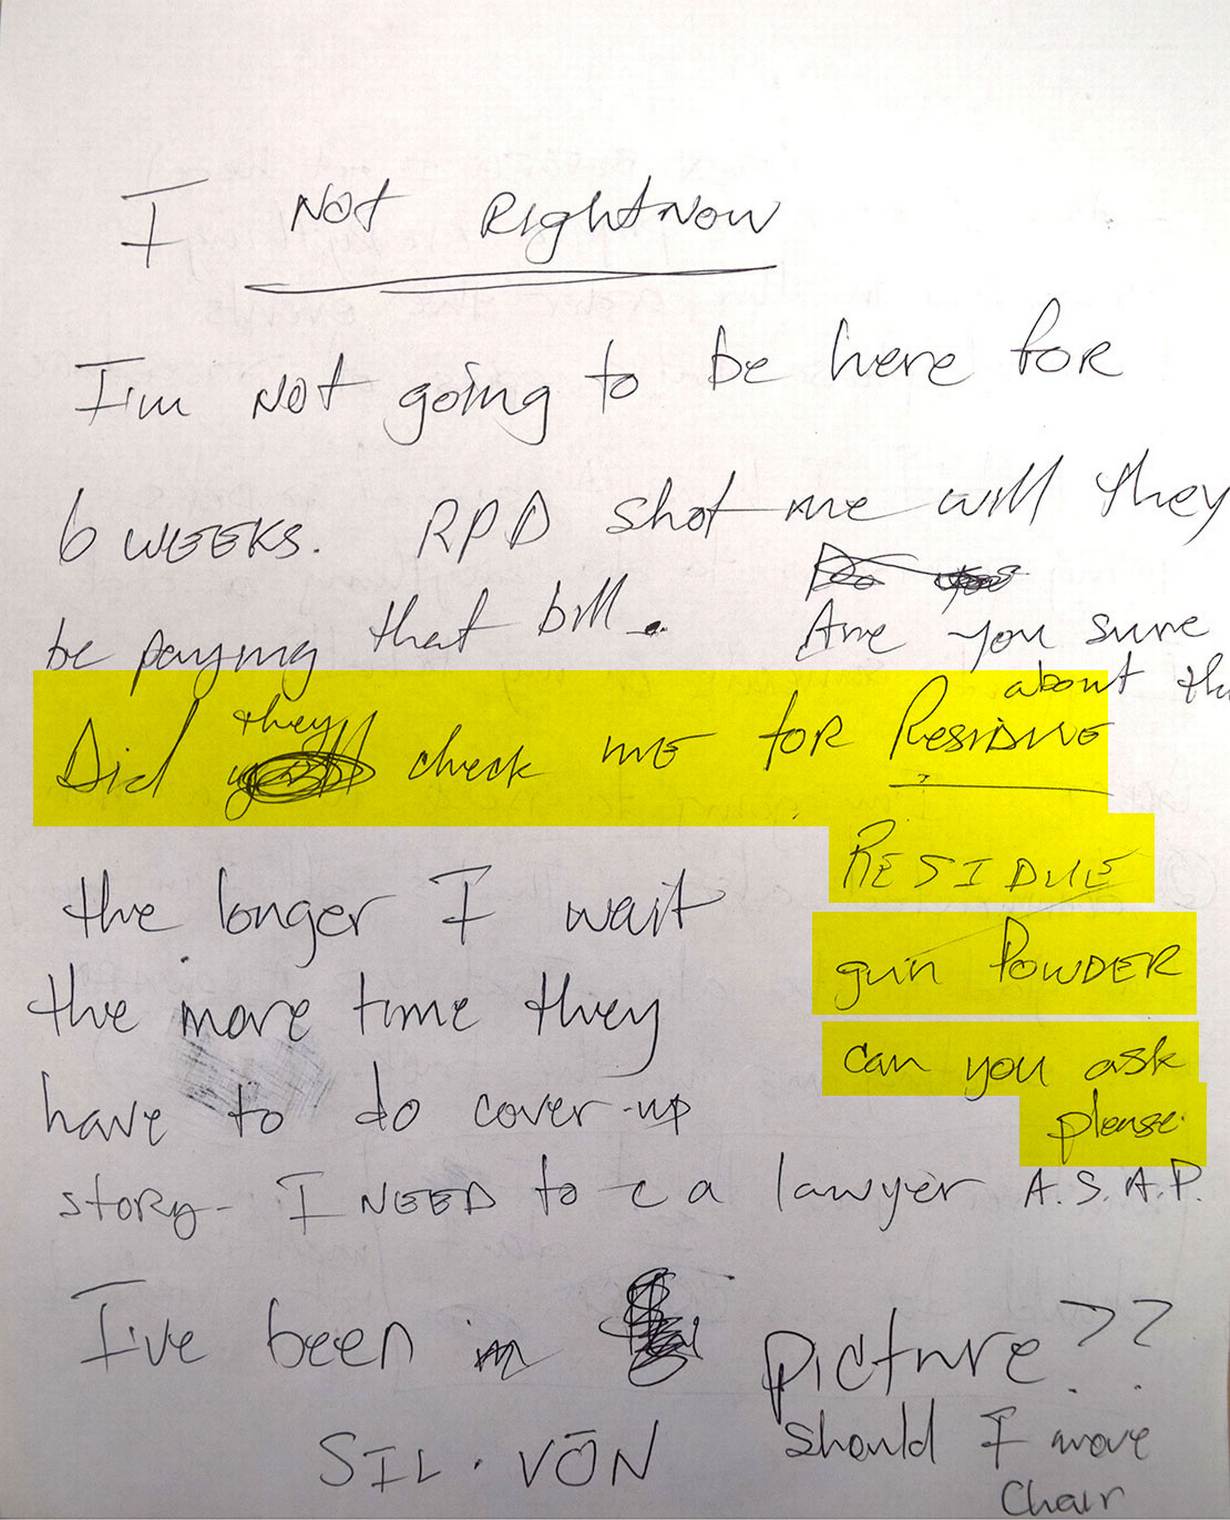 I Not Right now
I'm Not going to be here for
6 WEEKS. RPD shot me will they
be paying that bill.
Are you sure
about
Did they check me for Residue
RESIDUE
gun POWDER
can you ask
please
the longer I wait
the more time they
have to do cover-up
story- I NEED to c a lawyer A.S.A.P.
I've been in picture??
SIL. VŌN
should I move
Chair